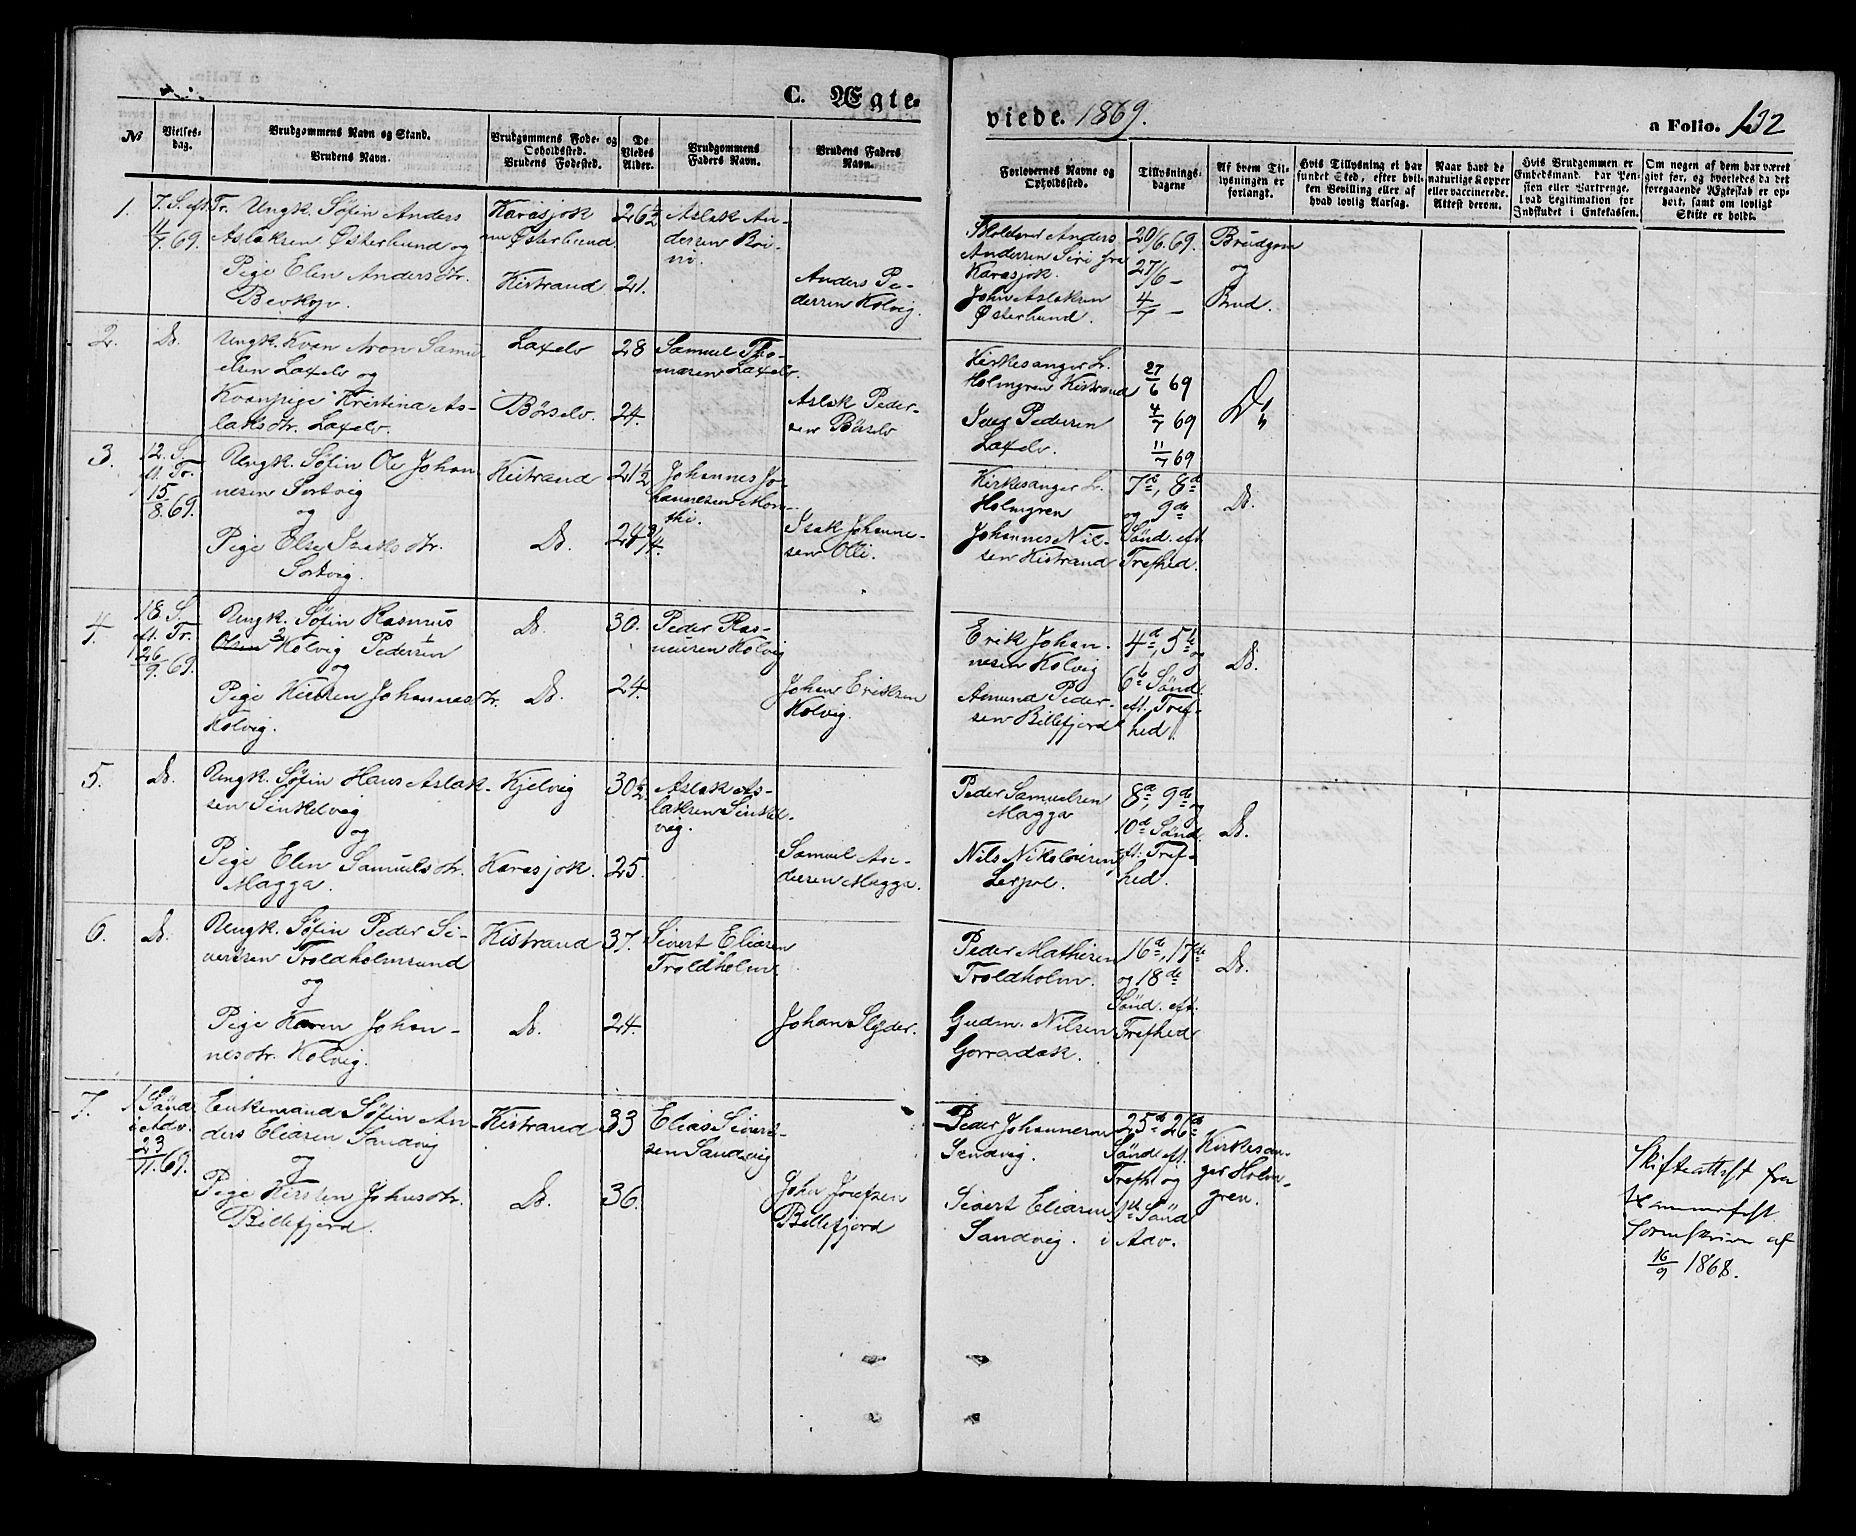 C. Ægte-
viede. 1869.
a Folio. 132
No
Vielses-
dag.
Brudgommens Navn og Stand.
Brudens Navn.
Brudgommens Føde- og
Opholdssted.
Brudens Fødested.
De
Viedes
Alder.
Brudgommens
Faders Navn.
Brudens Faders
Navn.
Forlovernes Navne og
Opholdssted.
Tillysnings-
dagene
Af hvem Til-
lysningen er
forlangt.
Hvis Tillysning ei har
fundet Sted, efter hvil-
ken Bevilling eller af
hvad lovlig Aarsag.
Naar havt de
naturlige Kopper
eller vaccinerede.
Attest derom.
Hvis Brudgommen er
Embedsmand, har Pen-
sion eller Vartpenge,
hvad Legitimation for
Indskudet i Enkekassen.
Om nogen af dem har været
gift før, og hvorledes da det
foregaaende Ægteskab er op-
hørt, samt om lovligt
Skifte er holdt.
1.
7. S. eft. Tr.
11/7 69.
Ungk. Søfin Anders
Aslaksen Østerbund og
Pige Elen Andersdtr.
Karasjok
Østerbund
Kistrand
26½
21.
Aslak An-
dersen
Anders Pe-
dersen Kolvig.
Anders
Andersen Siri fra
Karasjok.
John Aslaksen
Østerbund.
20/6. 69.
27/6 -
4/7 -
Brudgom
og
Brud.
2.
Do.
Ungk. Kvæn Aron Samu-
elsen Laxelv og
Kvænpige Kristina As-
laksdtr. Laxelv.
Laxelv
Børselv.
28
24.
Samuel Tho-
masen Laxelv.
Aslak Peder-
sen Børselv
Kirkesanger L.
Holmgren Kistrand
Pedersen
Laxelv.
27/6 69
4/7 69
11/7 69
Do.
3.
12. S.
eft. Tr.
15/8. 69.
Ungk. Søfin Ole Johan-
nesen Sortvig
og
Pige Else Isaksdtr.
Sortvig.
Kistrand
Do.
21½
24¾.
Johannes Jo-
hannesen
Isak Johanne-
sen Olli.
Kirkesanger L.
Holmgren
Johannes Nil-
sen Kistrand
7de, 8de
og 9de
Sönd. eft.
Trefhed.
Do.
4.
18. S.
eft. Tr.
26/9. 69.
Ungk. Søfin Rasmus
Olsen Kolvig Pedersen
og
Pige Kirsten Johannesdtr.
Kolvig.
Do.
Do.
30.
24.
Peder Ras-
mussen Kolvig
Johan Eriksen
Kolvig.
Erik Johan-
nesen Kolvig
Amund Peder-
sen Billefjord
4de, 5te og
6te Sönd.
eft. Tref-
hed.
Do.
5.
Do.
Ungk. Søfin Hans Aslak-
sen Sinkelvig
og
Pige Elen Samuelsdtr.
Magga.
Kjelvig
Karasjok.
30½
25.
Aslak As-
laksen Sinkel-
vig.
Samuel An-
dersen Magga.
Peder Samuelsen
Magga
Nils Nikolaisen
Lerpol.
8de, 9de og
10de Sönd.
eft. Tref-
hed.
Do.
6.
Do.
Ungk. Søfin Peder Si-
vertsen Troldholmsund
og
Pige Karen Johan-
nesdtr. Kolvig.
Kistrand
Do.
37.
24.
Sivert Eliasen
Troldholm
Johan Slyder.
Peder Mathisen
Troldholm.
Gudm. Nilsen
Gorradak.
16de, 17de
og 18de
Sönd. eft.
Trefhed
Do.
7.
1 Sönd.
i Adv.
23/11. 69.
Enkemand Søfin An-
ders Eliasen Sandvig
og
Pige Kirsten Johnsdtr.
Billefjord.
Kistrand
Do.
33
36.
Elias Sivert-
sen Sandvig
John Josefsen
Billefjord
Peder Johannesen
Sandvig.
Sivert Eliasen
Sandvig.
25de 26de
Sönd. eft.
Trefh. og
1ste Sönd
i Adv.
Kirkesan-
ger Holm-
gren.
Skifteattest fra
Hammerfest
Sorenskriver af
16/9 1868.